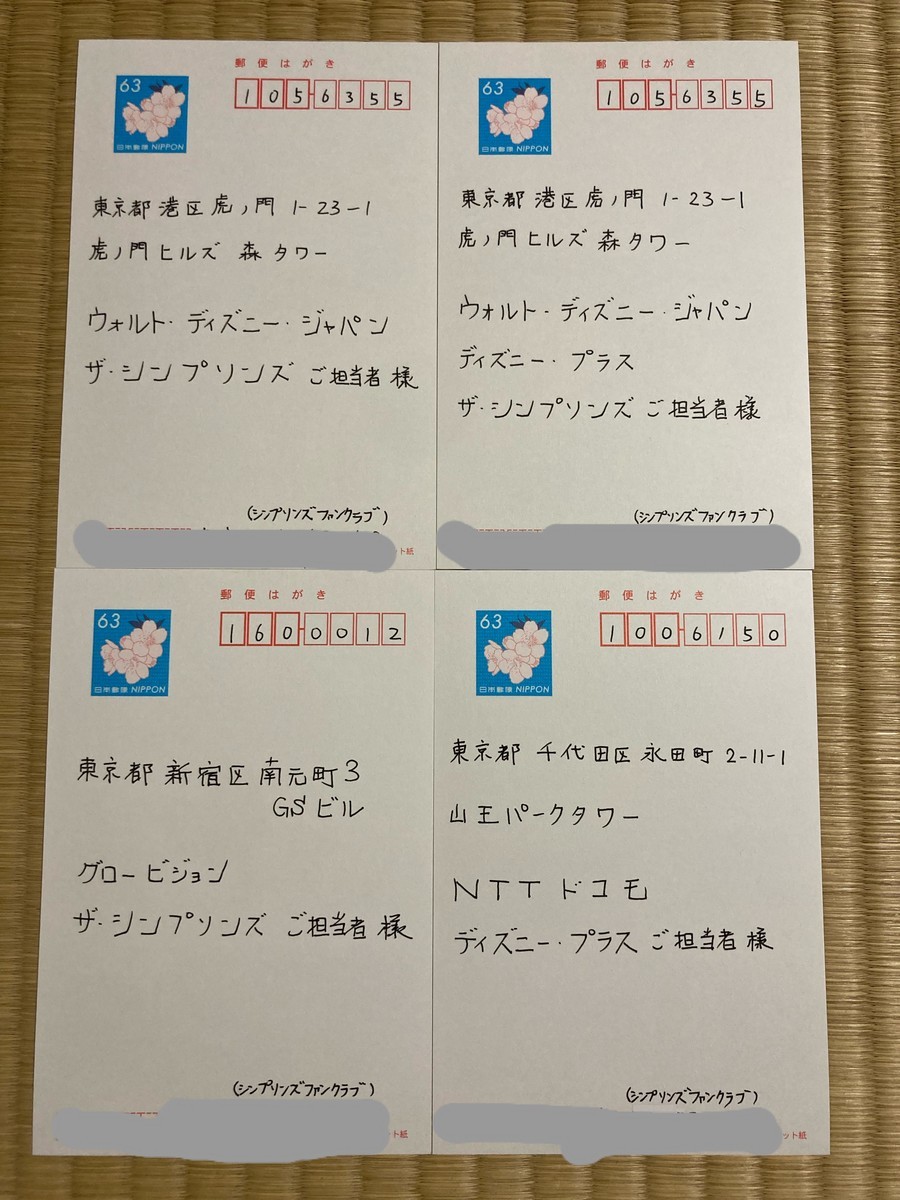 郵便はがき
63
日本郵便 NIPPON
105-6355
東京都 港区 虎ノ門 1-23-1
虎ノ門 ヒルズ 森 タワー
ウォルト・ディズニー・ジャパン
ザ・シンプソンズ ご担当者 様
(シンプソンズファンクラブ)
ット紙
郵便はがき
63
日本郵便 NIPPON
105-6355
東京都 港区 虎ノ門 1-23-1
虎ノ門 ヒルズ 森 タワー
ウォルト・ディズニー・ジャパン
ディズニー・プラス
ザ・シンプソンズ ご担当者 様
(シンプソンズファンクラブ)
郵便はがき
63
日本郵便 NIPPON
160-0012
東京都 新宿区 南元町 3
GS ビル
グロービジョン
ザ・シンプソンズ ご担当者 様
(シンプソンズファンクラブ)
ット紙
郵便はがき
63
日本郵便 NIPPON
100-6150
東京都 千代田区 永田町 2-11-1
山王パークタワー
NTT ドコモ
ディズニー・プラス ご担当者 様
(シンプソンズファンクラブ)
ット紙